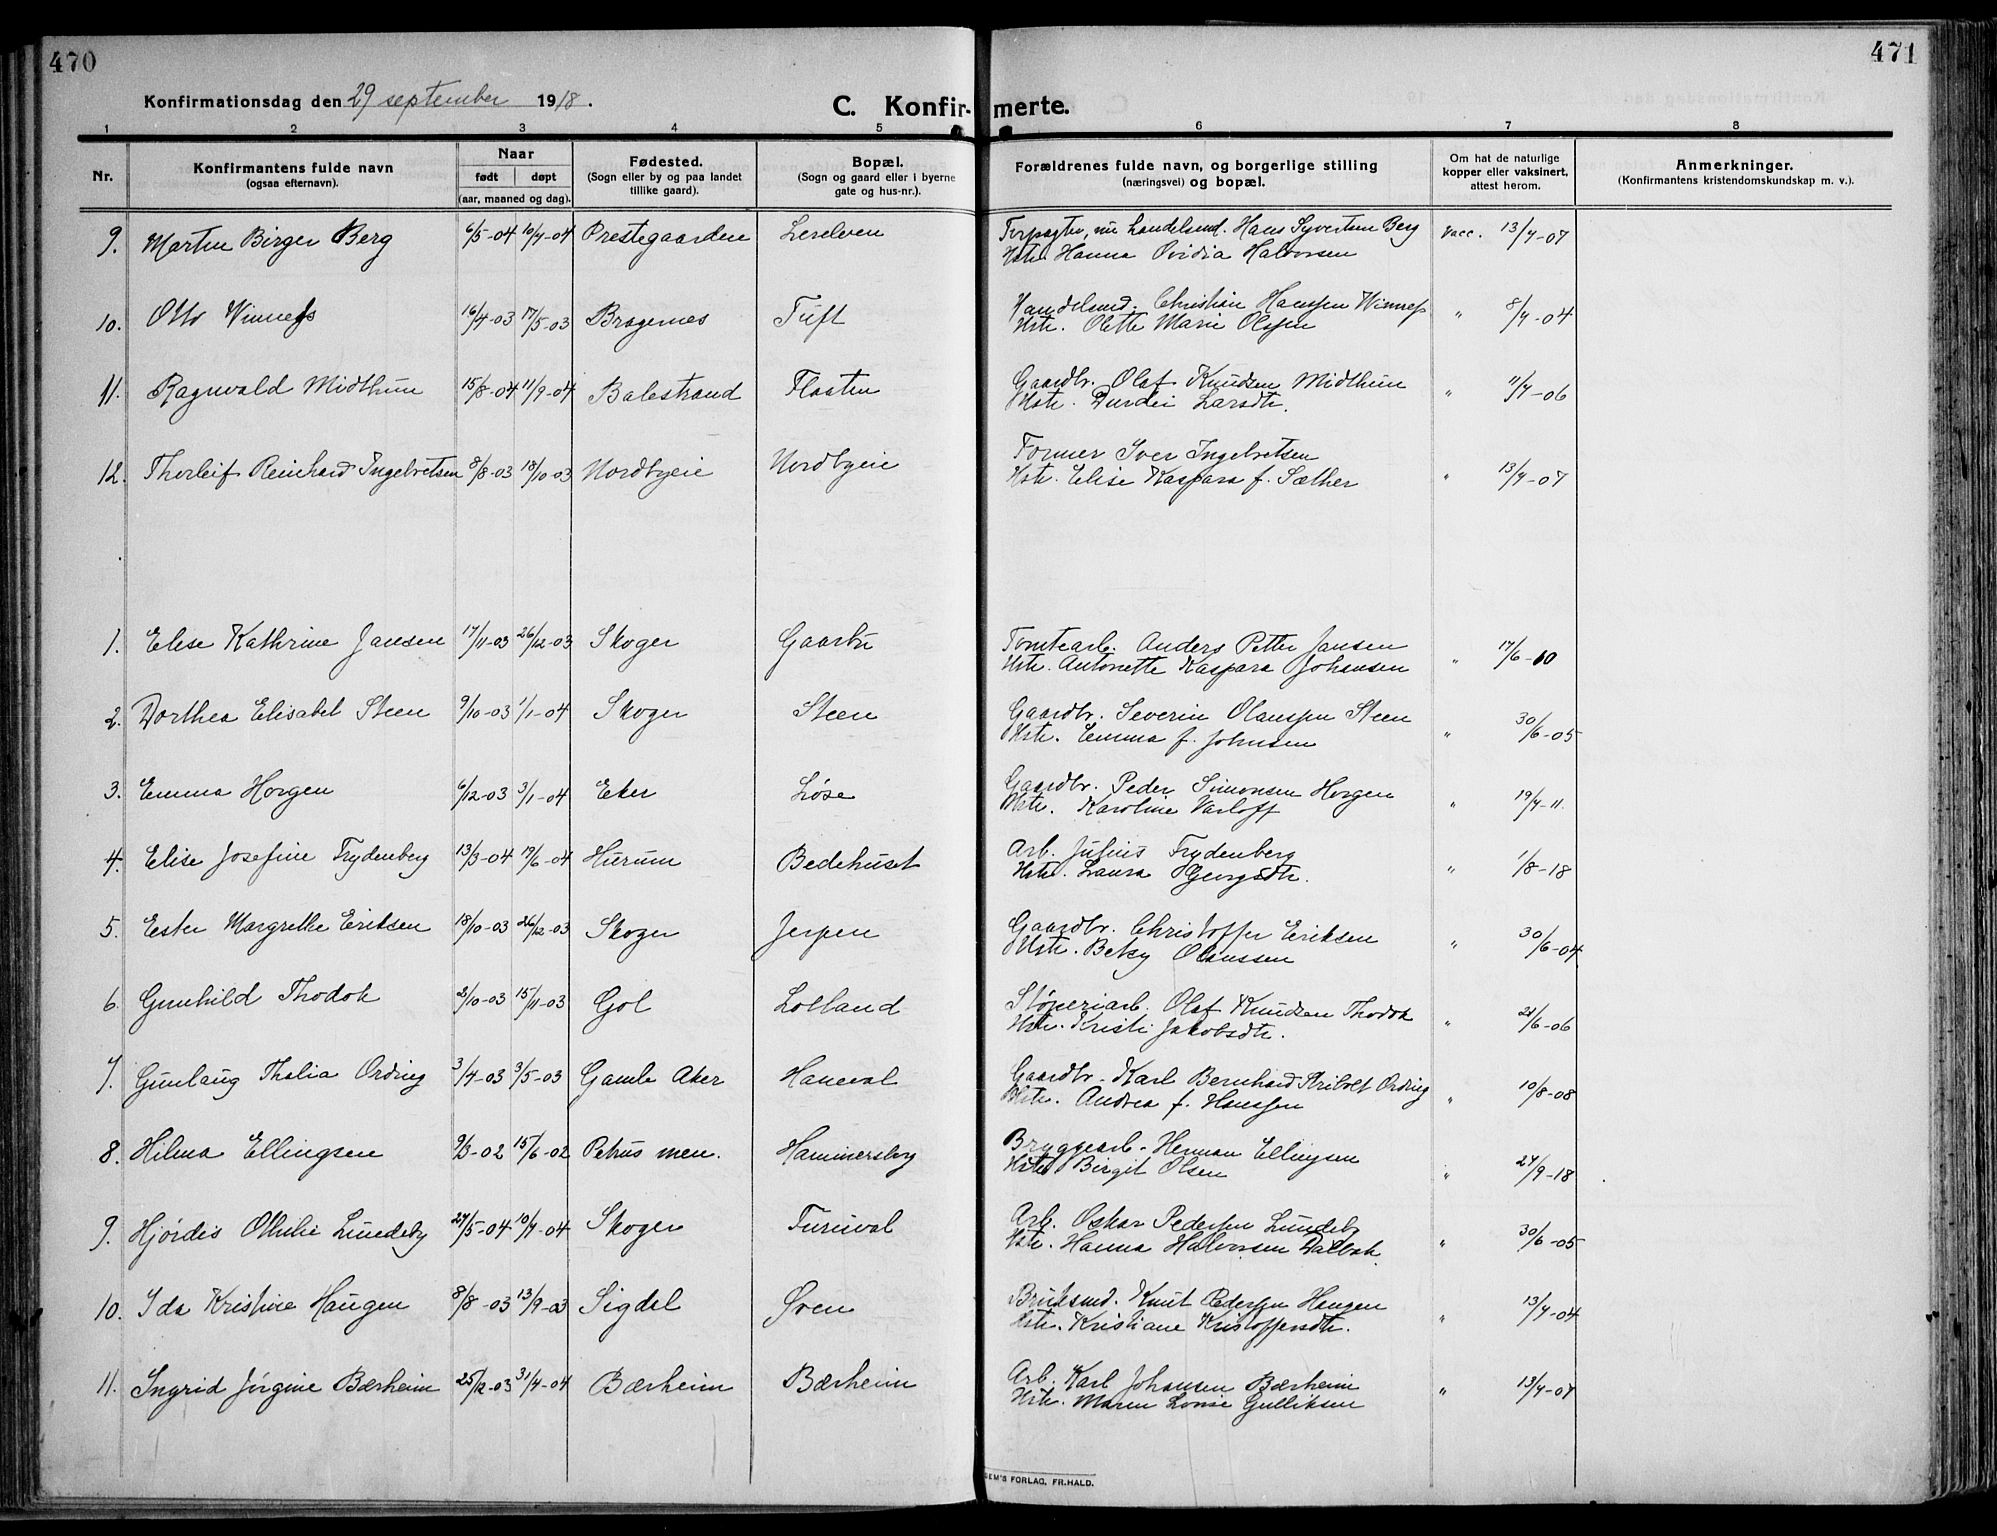 470
471
Konfirmationsdag den 29 september 1918.
C. Konfir- merte.
1 2 3 4 5 6 7 8
Nr.
Konfirmantens fulde navn
(ogsaa efternavn).
Naar
født døpt
(aar, maaned og dag).
Fødested.
(Sogn eller by og paa landet
tillike gaard).
Bopæl.
(Sogn og gaard eller i byerne
gate og hus-nr.).
Forældrenes fulde navn, og borgerlige stilling
(næringsvei) og bopæl.
Om hat de naturlige
kopper eller vaksinert,
attest herom.
Anmerkninger.
(Konfirmantens kristendomskundskap m. v.).
9. Martin Birger Berg 6/5-04 10/7-04 Prestegaarden Lerelven Hans Syvertsen Berg vacc. 13/7-07
Hstr. Hanna Ovidia Halvorsen
10. Otto Winness 16/4-03 17/5-03 Bragernes Tuft Handelsmd. Christian Hanssen Winness " 8/7-04
Hstr. Olette Marie Olssen
11. Ragnvald Midthun 15/8-04 11/9-04 Balestrand Flaaten Gaardbr. Olaf Knudsen Midthun " 11/7-06
Hstr. Durdei Larsdtr.
12. Thorleif Reinhard Ingebretsen 8/8-03 18/10-03 Nordbyeie Nordbyeie Former Iver Ingebretsen
Hstr. Elise Kaspara f. Sæther " 13/7-07
1. Elise Kathrine Jansen 17/11-03 26/12-03 Skoger Gaarbu Tomtearb. Anders Petter Jansen
Hstr. Antonette Kaspara Johansen " 17/6-10
2. Dorthea Elisabet Steen 9/10-03 1/1-04 Skoger Steen Gaardbr. Severin Olaussen Steen
Hstr. Emma f. Johnsen " 30/6-05
3. Emma Horgen 6/12-03 3/1-04 Eker Løse Gaardbr. Peder Simonsen Horgen
Hstr. Karoline Varloff " 19/7-11.
4. Elise Josefine Frydenberg 13/3-04 19/6-04 Hurum Bedehuset Arb. Julius Frydenberg
Hstr. Laura Georgsdtr. " 1/8-18
5. Ester Margrethe Eriksen 18/10-03 26/12-03 Skoger Jerpen Gaardbr. Christoffer Eriksen
Hstr. Betsy Olaussen " 30/6-04
6. Gunhild Thodok 2/10-03 15/11-03 Gol Lolland Støperiarb. Olaf Knudsen Thodok
Hstr. Kristi Jakobsdtr. " 21/6-06
7. Gunlaug Thalia Ording 3/4-03 3/5-03 Gamle Aker Haneval Gaardbr. Karl Bernhard Ording
Hstr. Andrea f. Hanssen " 10/8-08
8. Hilma Ellingsen 9/3-02 15/6-02 Petrus men. Hammersborg Bryggearb. Herman Ellingsen
Hstr. Birgit Olsen " 27/9-18
9. Hjørdis Othilie Lundeby 27/5-04 10/7-04 Skoger Furuval Arb. Oskar Pedersen Lundeby
Hstr. Hanna Halvorsen Dalbak. " 30/6-05
10. Ida Kristine Haugen 8/8-03 13/9-03 Sigdal Øren Bruksmd. Knut Pedersen Haugen
Hstr. Kristiane Kristoffersdtr. " 13/7-04
11. Ingrid Jørgine Bærheim 25/12-03 31/7-04 Bærheim Bærheim Arb. Karl Johansen Bærheim
Hstr. Maren Lovise Gulliksen " 13/7-07
FORLAG, FR. HALD.